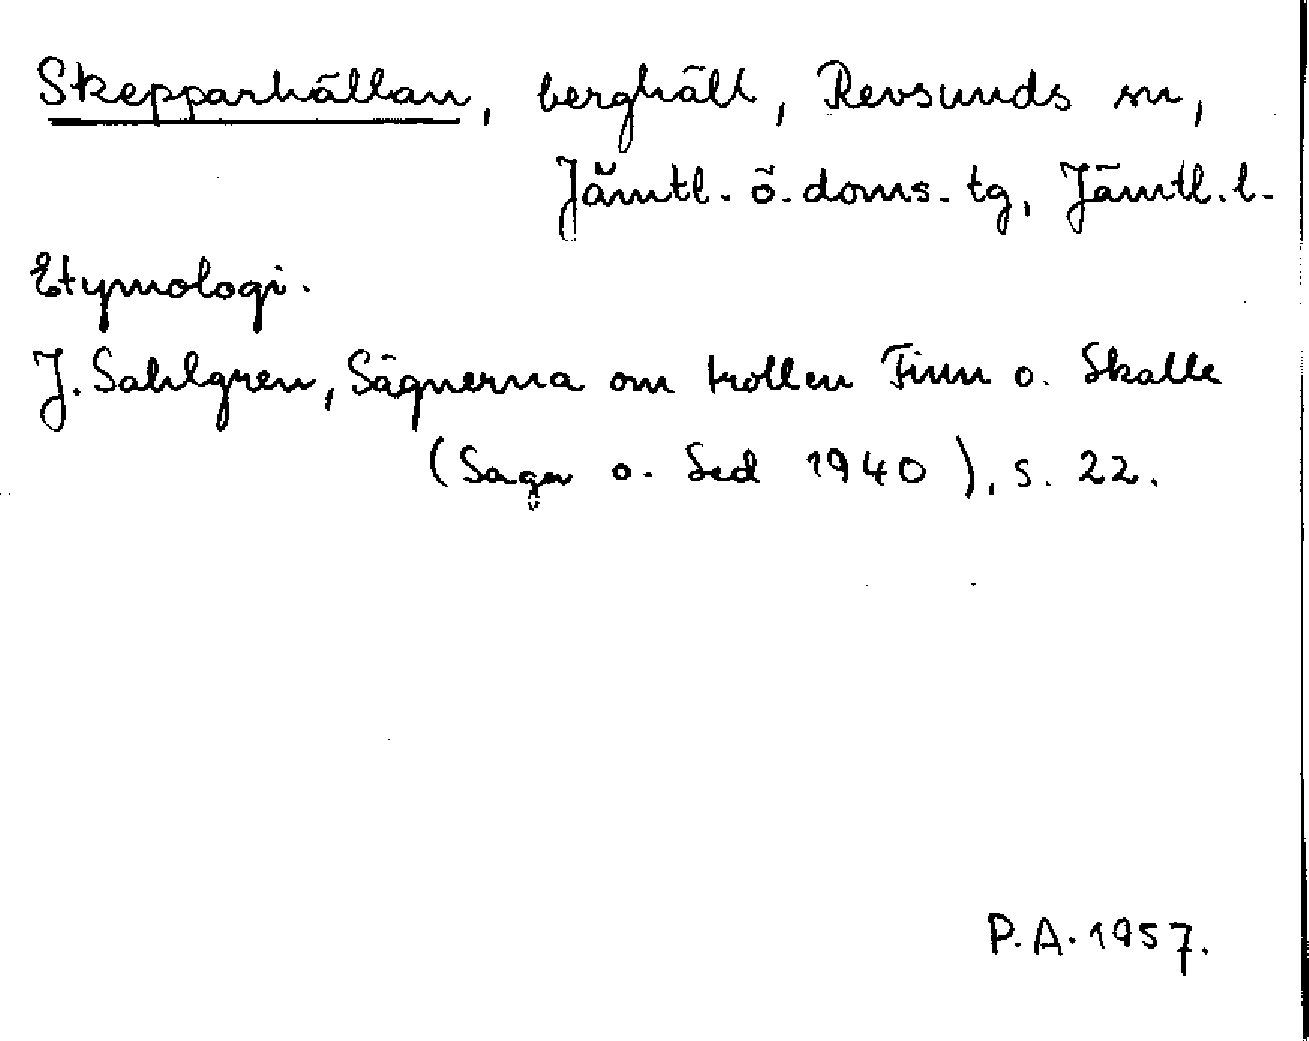 Skepparhällan, berghäll, Revsunds sn,
Jämtl. ö. doms. tg, Jämtl. l.
Etymologi.
J. Sahlgren, Sägnerna om trollen Finn o. Skalle
(Saga o. Sed 1940), s. 22.
P.A. 1957.